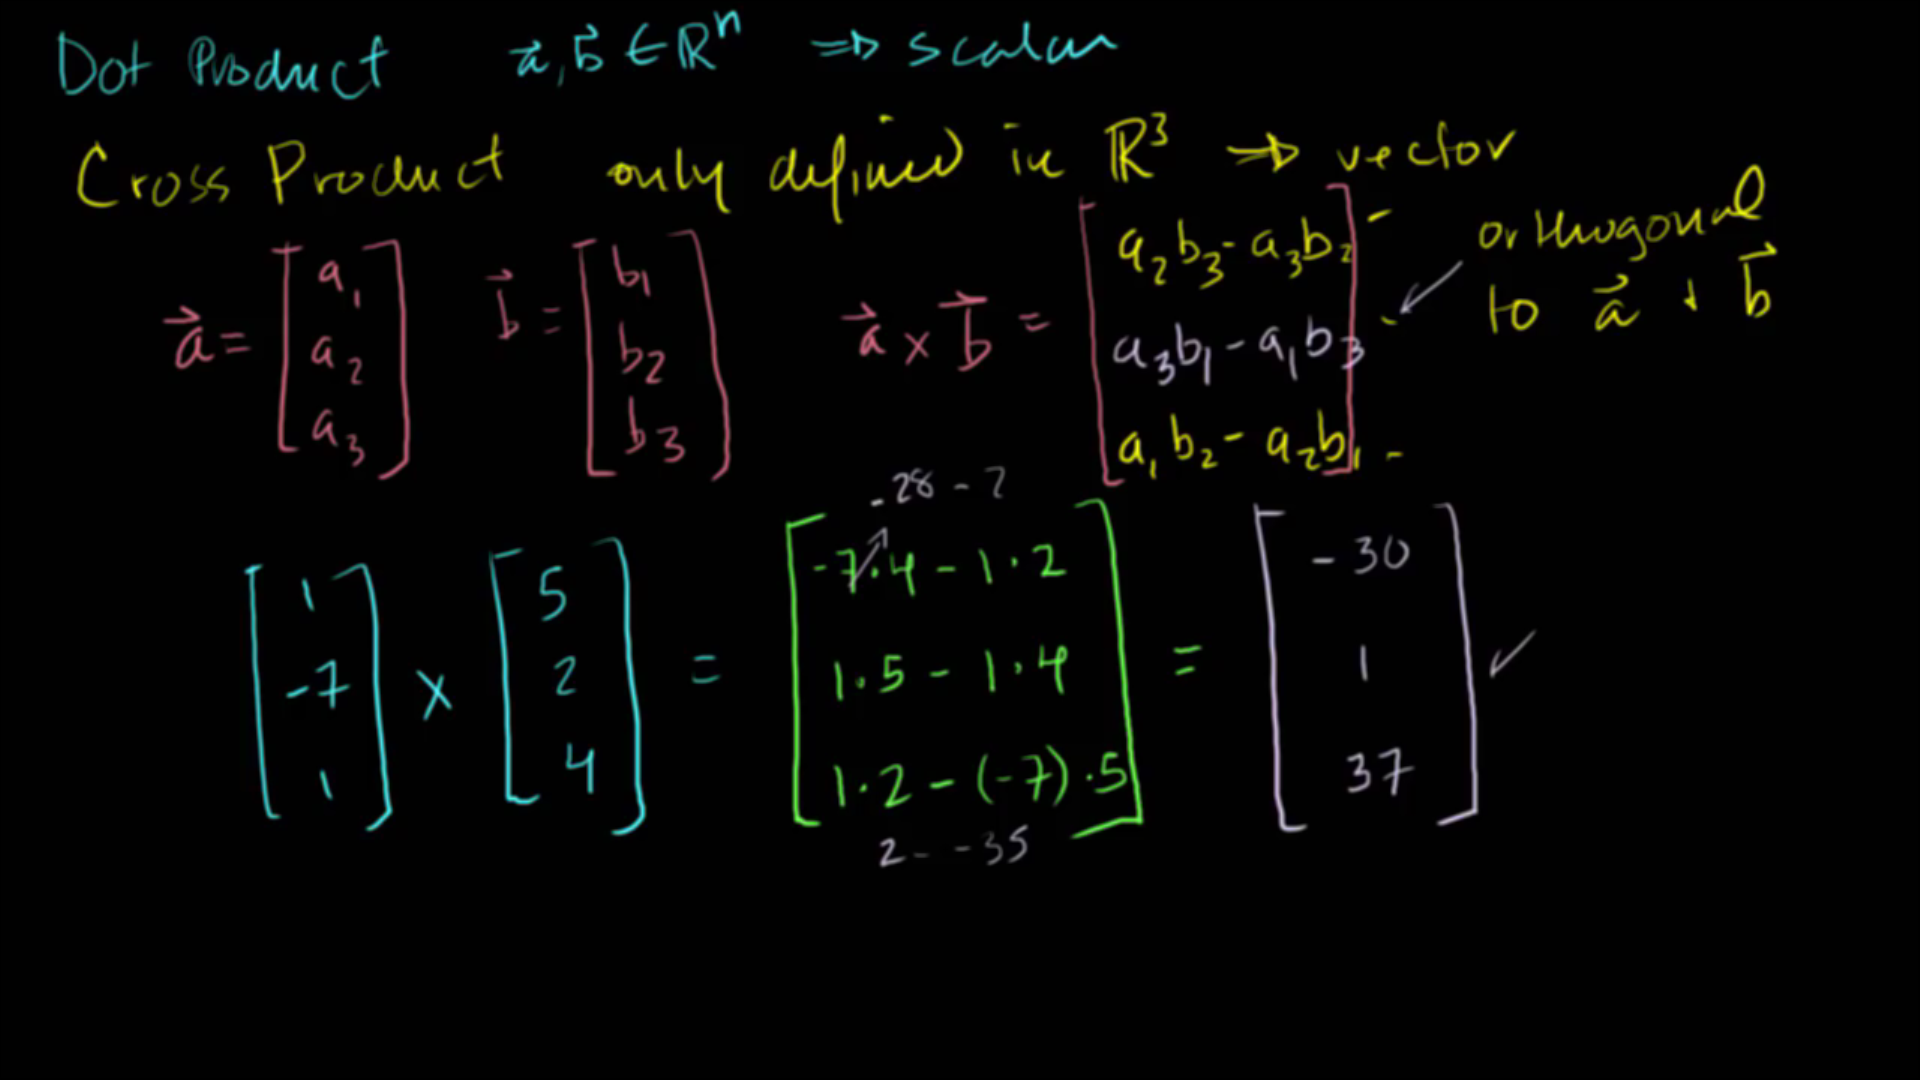 Dot Product a⃗, b⃗ ∈ ℝⁿ ⇒ scalar
Cross Product only defined in ℝ³ → vector
a⃗ = [a₁ a₂ a₃] b⃗ = [b₁ b₂ b₃] a⃗ × b⃗ = [a₂b₃ - a₃b₂ a₃b₁ - a₁b₃ a₁b₂ - a₂b₁]
orthogonal
to a⃗ + b⃗
-28 - 2
[1 -7 1] × [5 2 4] = [-7·4 - 1·2 1·5 - 1·4 1·2 - (-7)·5] = [-30 1 37]
2 - -35